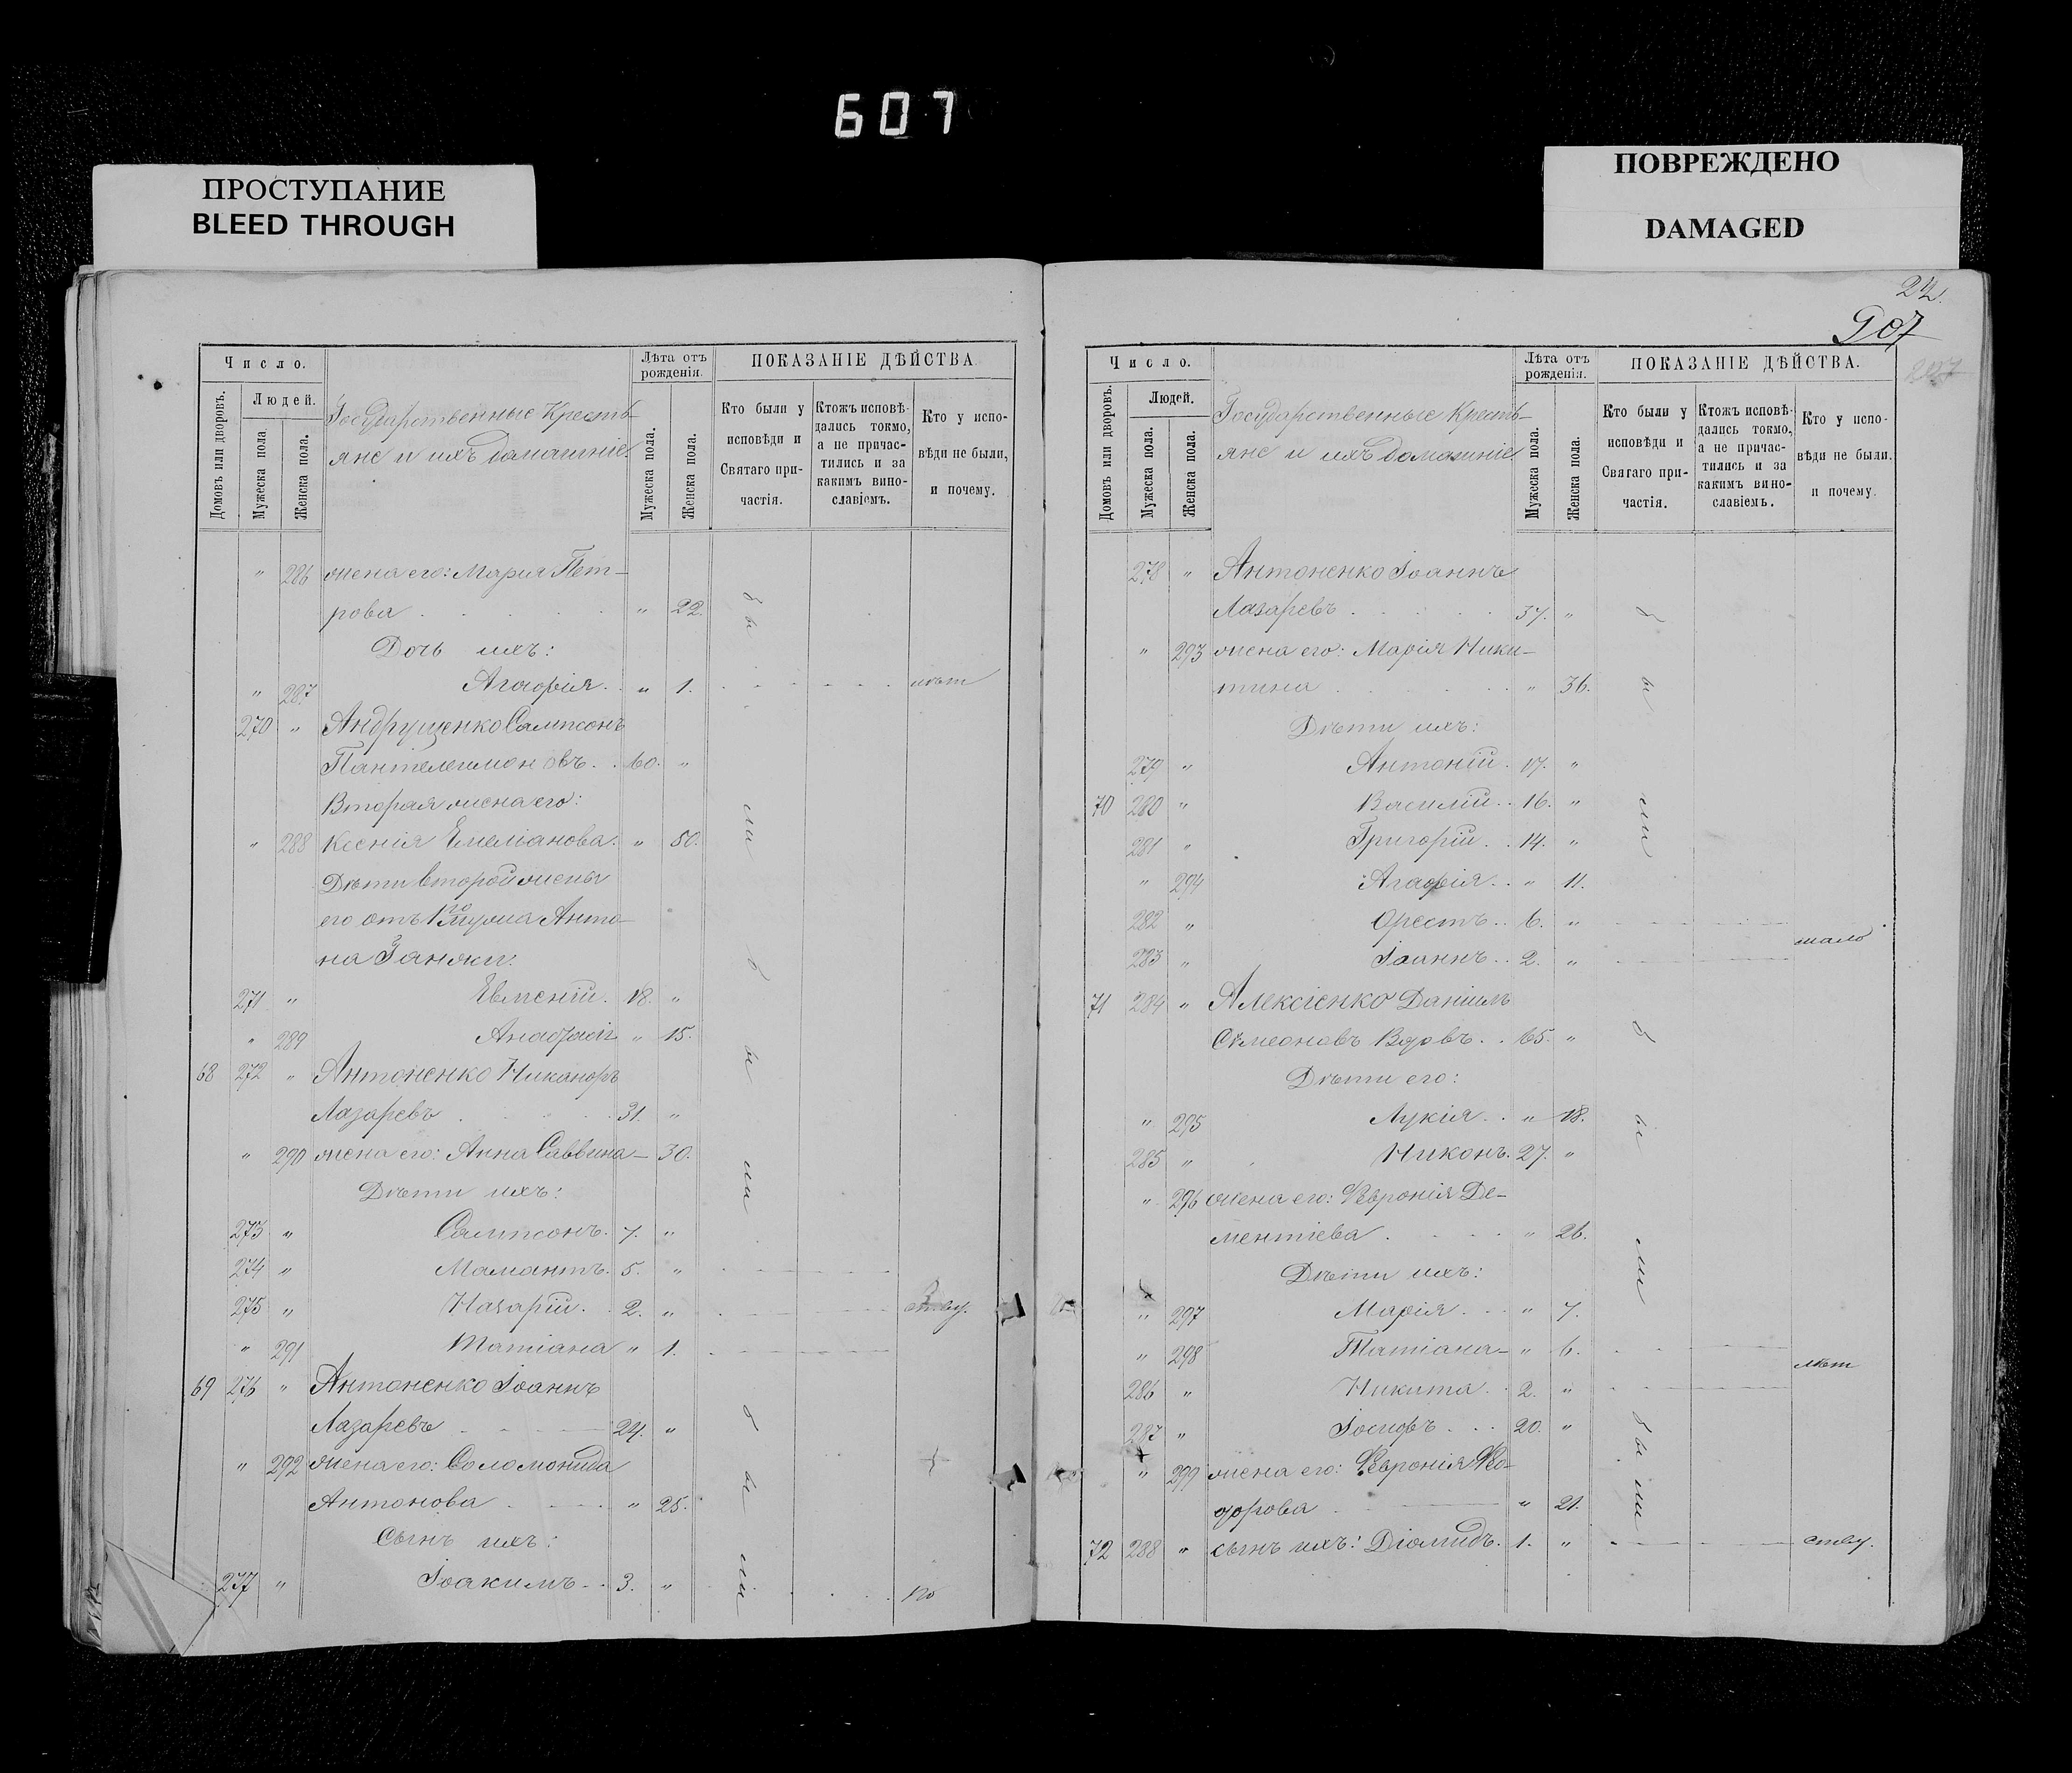 607
ПРОСТУПАНИЕ
BLEED THROUGH
ПОВРЕЖДЕНО
DAMAGED
Число.
Людей.
Домовъ или дворовъ.
Мужеска пола.
Женска пола.
Государственные Кресть-
яне и ихъ домашніе.
Лѣта отъ
рожденія.
Мужеска пола.
Женска пола.
ПОКАЗАНІЕ ДѢЙСТВА
Кто были у
исповѣди и
Святаго при-
частія.
Ктожъ исповѣ-
дались токмо,
а не причас-
тились и за
какимъ вино-
славіемъ.
Кто у испо-
вѣди не были,
и почему.
" 286 жена его: Мария Пет-
рова " 22.
Дочь ихъ:
" 287 Агафія " 1. лѣт
270 " Андрущенко Сампсонъ
Пантелеимоновъ 60. "
Вторая жена его:
" 288 Ксенія Емеліанова. " 50.
Дѣти второй жены
его отъ 1го мужа Анто-
на Заики.
271 " Евменій. 18. "
" 289 " 15.
68 272 " Антоненко Никаноръ
Лазаревъ 31. "
" 290 жена его: Анна Саввина 30.
Дѣти ихъ:
273 " Сампсонъ. 7. "
274 " Мамантъ. 5. "
275 " Назарій. 2. "
" 291 Татіана " 1.
69 276 " Антоненко Іоаннъ
Лазаревъ 24. "
" 292 жена его: Соломонида
Антонова " 25.
Сынъ ихъ:
277 " Іоакимъ 3. " по
были
были
были
22.
607
Число.
Людей.
Домовъ или дворовъ.
Мужеска пола.
Женска пола.
Государственные Кресть-
яне и ихъ домашніе
Лѣта отъ
рожденія.
Мужеска пола.
Женска пола.
ПОКАЗАНІЕ ДѢЙСТВА.
Кто были у
исповѣди и
Святаго при-
частія.
Ктожъ исповѣ-
дались токмо,
а не причас-
тились и за
какимъ вино-
славіемъ.
Кто у испо-
вѣди не были.
и почему.
278 " Антоненко Іоаннъ
Лазаревъ 37. "
" 293 жена его: Марія Ники-
тина " 36.
Дѣти ихъ:
279 " Антоній. 17. "
70 280 " Василій. 16. "
281 " Григорій. 14. "
" 294 Агафія " 11.
282 " Орестъ 6. "
мало
283 " Іоаннъ 2. "
71 284 " Алексіенко Даніилъ
Симеоновъ Вдовъ 65. "
Дѣти его:
" 295 Лукія " 18.
285 " Никонъ. 27. "
" 296 жена его: Февронія Де-
ментіева " 26.
Дѣти ихъ:
" 297 Марія " 7.
" 298 Татіана " 6.
лѣт
286 " Никита 2. "
287 " Іосифъ 20. "
" 299 жена его: Февронія Фео-
дорова " 21.
72 288 " сынъ ихъ: Діомидъ. 1. " ству.
были
были
были